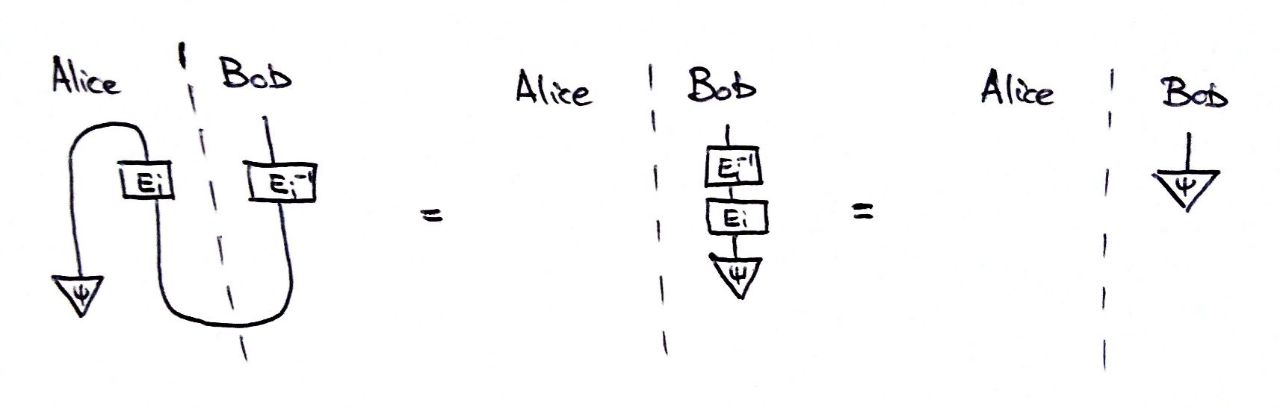 Alice Bob
Ei Ei⁻¹
ψ
=
Alice Bob
Ei⁻¹
Ei
ψ
=
Alice Bob
ψ